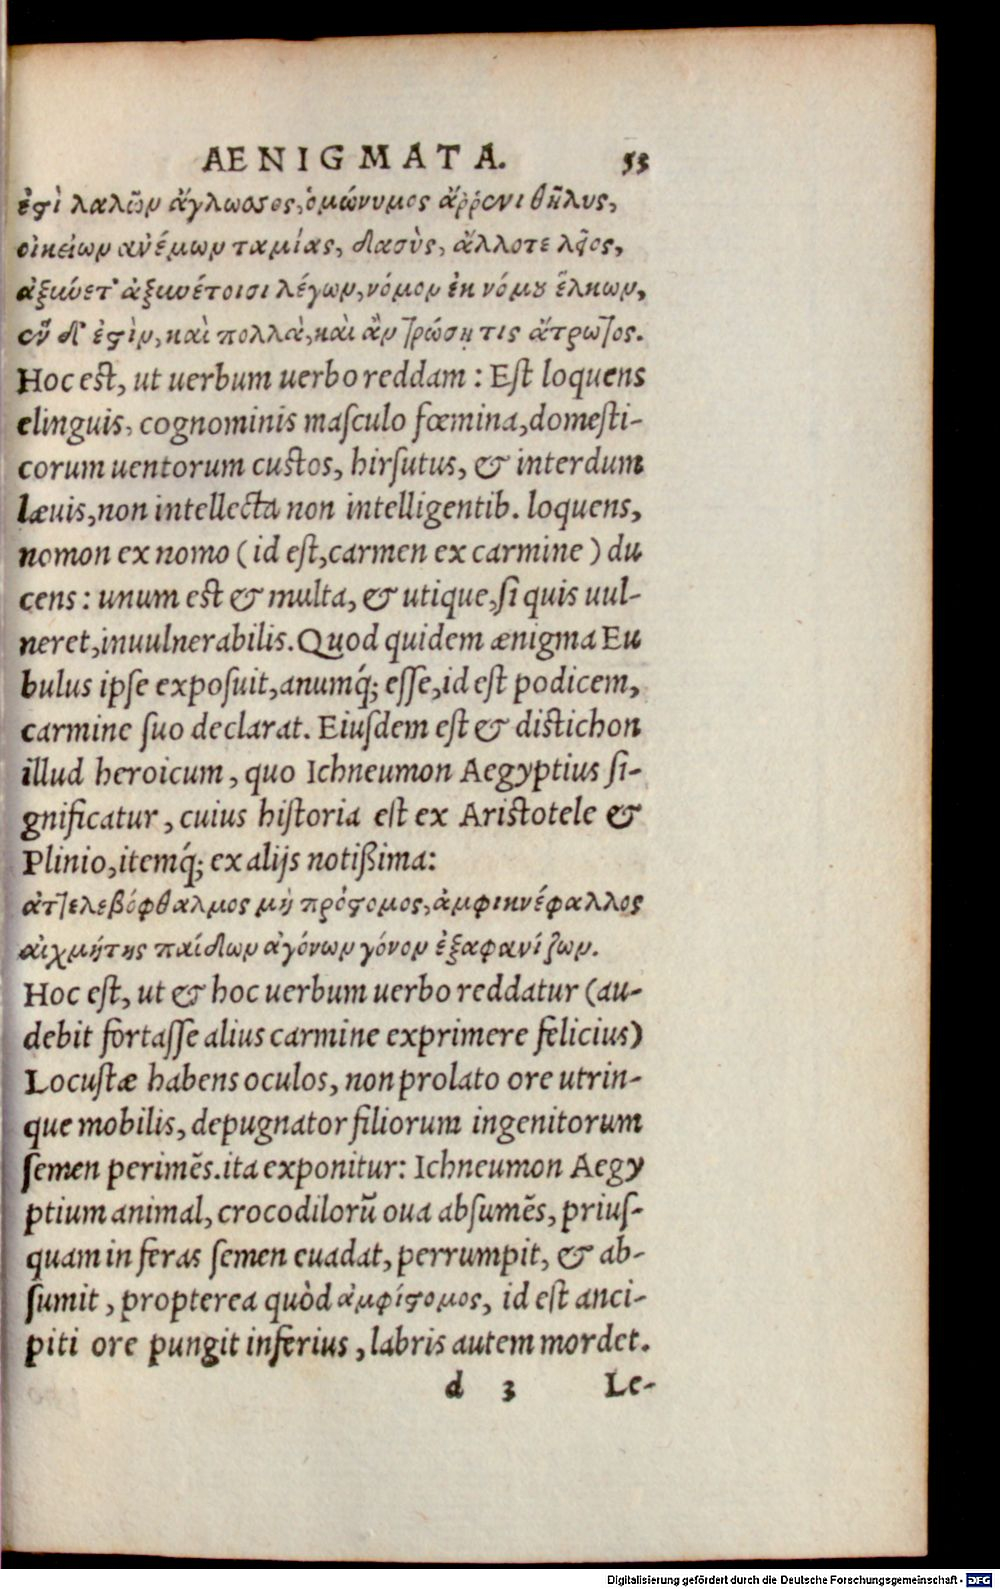 AENIGMATA. 53
ἐϛὶ λαλῶν ἄγλωσσος, ὁμώνυμος ἄῤῥενι θῆλυς,
οἰκείων ἀνέμων ταμίας, δασὺς, ἄλλοτε λεῖος,
ἀξύνετ' ἀξυνέτοισι λέγων, νόμον ἐκ νόμȣ ἕλκων,
ἓν δ' ἐϛὶν, καὶ πολλὰ, καὶ ἂν τρώσῃ τις ἄτρωτος.
Hoc est, ut uerbum uerbo reddam : Eſt loquens
elinguis, cognominis maſculo fœmina, domeſti-
corum uentorum custos, hirſutus, & interdum
læuis, non intellecta non intelligentib. loquens,
nomon ex nomo ( id eſt, carmen ex carmine ) du
cens : unum est & multa, & utique, ſi quis uul-
neret, inuulnerabilis. Quod quidem ænigma Eu
bulus ipſe expoſuit, anumq́; eſſe, id eſt podicem,
carmine ſuo declarat. Eiuſdem eſt & distichon
illud heroicum, quo Ichneumon Aegyptius ſi-
gnificatur, cuius hiſtoria est ex Aristotele &
Plinio, itemq́; ex alijs notißima:
ἀττελεβόφθαλμος μὴ πρόϛομος, ἀμφικνέφαλλος
αἰχμήτης παίδων ἀγόνων γόνον ἐξαφανίζων.
Hoc eſt, ut & hoc uerbum uerbo reddatur (au-
debit fortaſſe alius carmine exprimere felicius)
Locuſtæ habens oculos, non prolato ore utrin-
que mobilis, depugnator filiorum ingenitorum
ſemen perimẽs. ita exponitur: Ichneumon Aegy
ptium animal, crocodilorũ oua abſumẽs, priuſ-
quam in feras ſemen euadat, perrumpit, & ab-
ſumit, propterea quòd ἀμφίϛομος, id eſt anci-
piti ore pungit inferius, labris autem mordet.
d 3 Le-
Digitalisierung gefördert durch die Deutsche Forschungsgemeinschaft - DFG